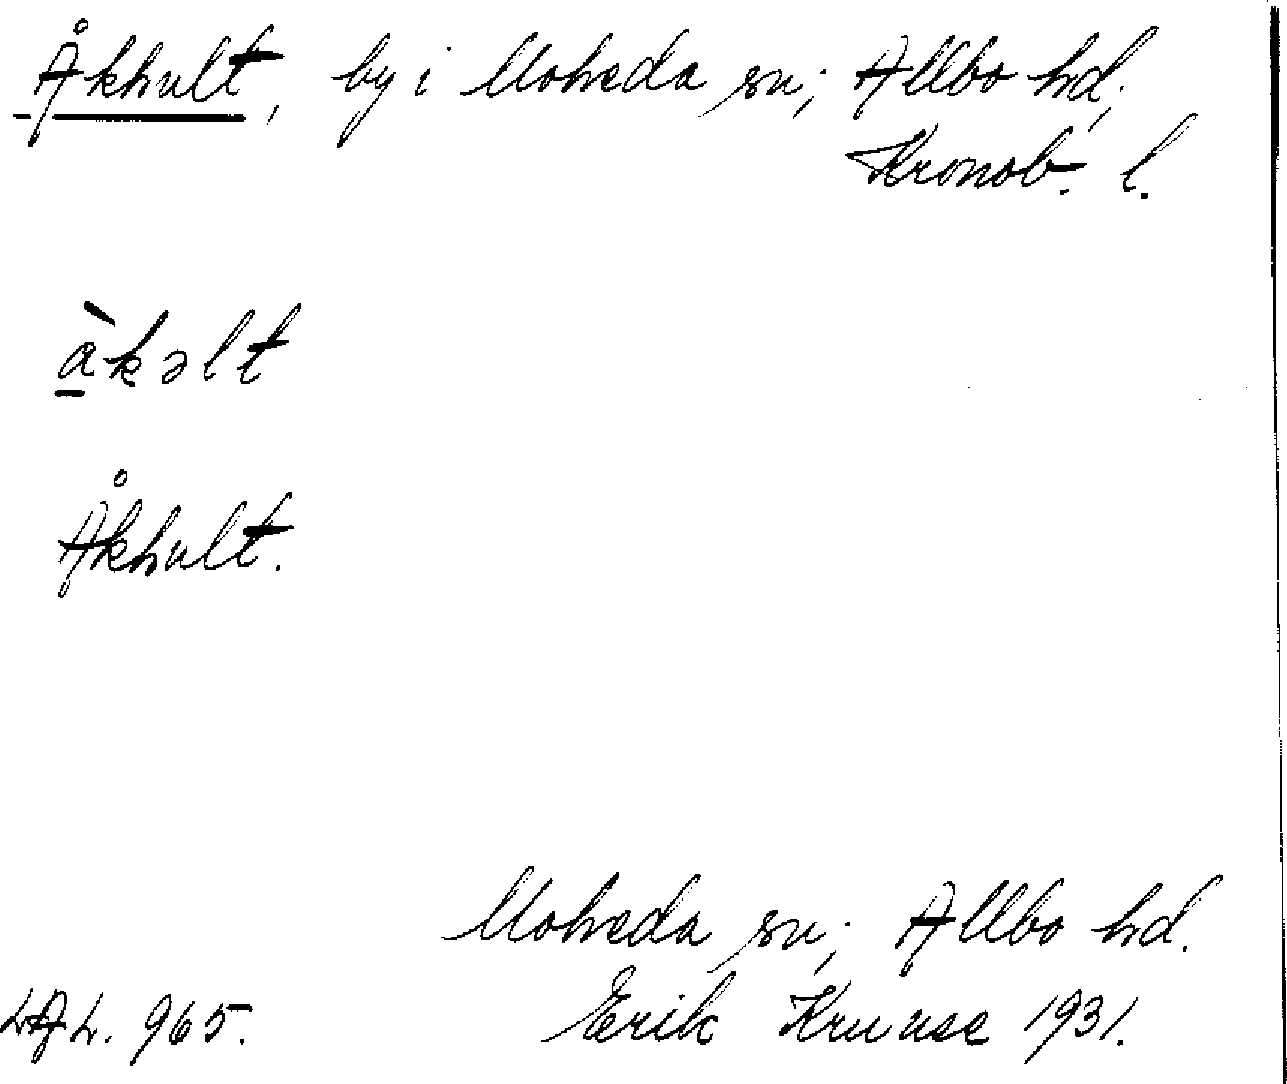 Åkhult, by i Moheda sn; Allbo hd;
Kronob. l.
à̱kəlt
Åkhult.
Moheda sn; Allbo hd.
LAL. 965. Erik Kruuse 1931.